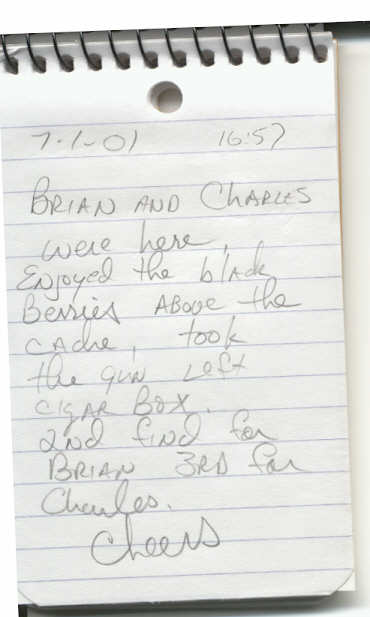 7-1-01 16:57
BRIAN AND CHARLES
were here,
Enjoyed the black
Berries ABOVE the
CACHE, took
the gun Left
CIGAR BOX.
2nd find for
BRIAN 3RD for
Charles.
Cheers